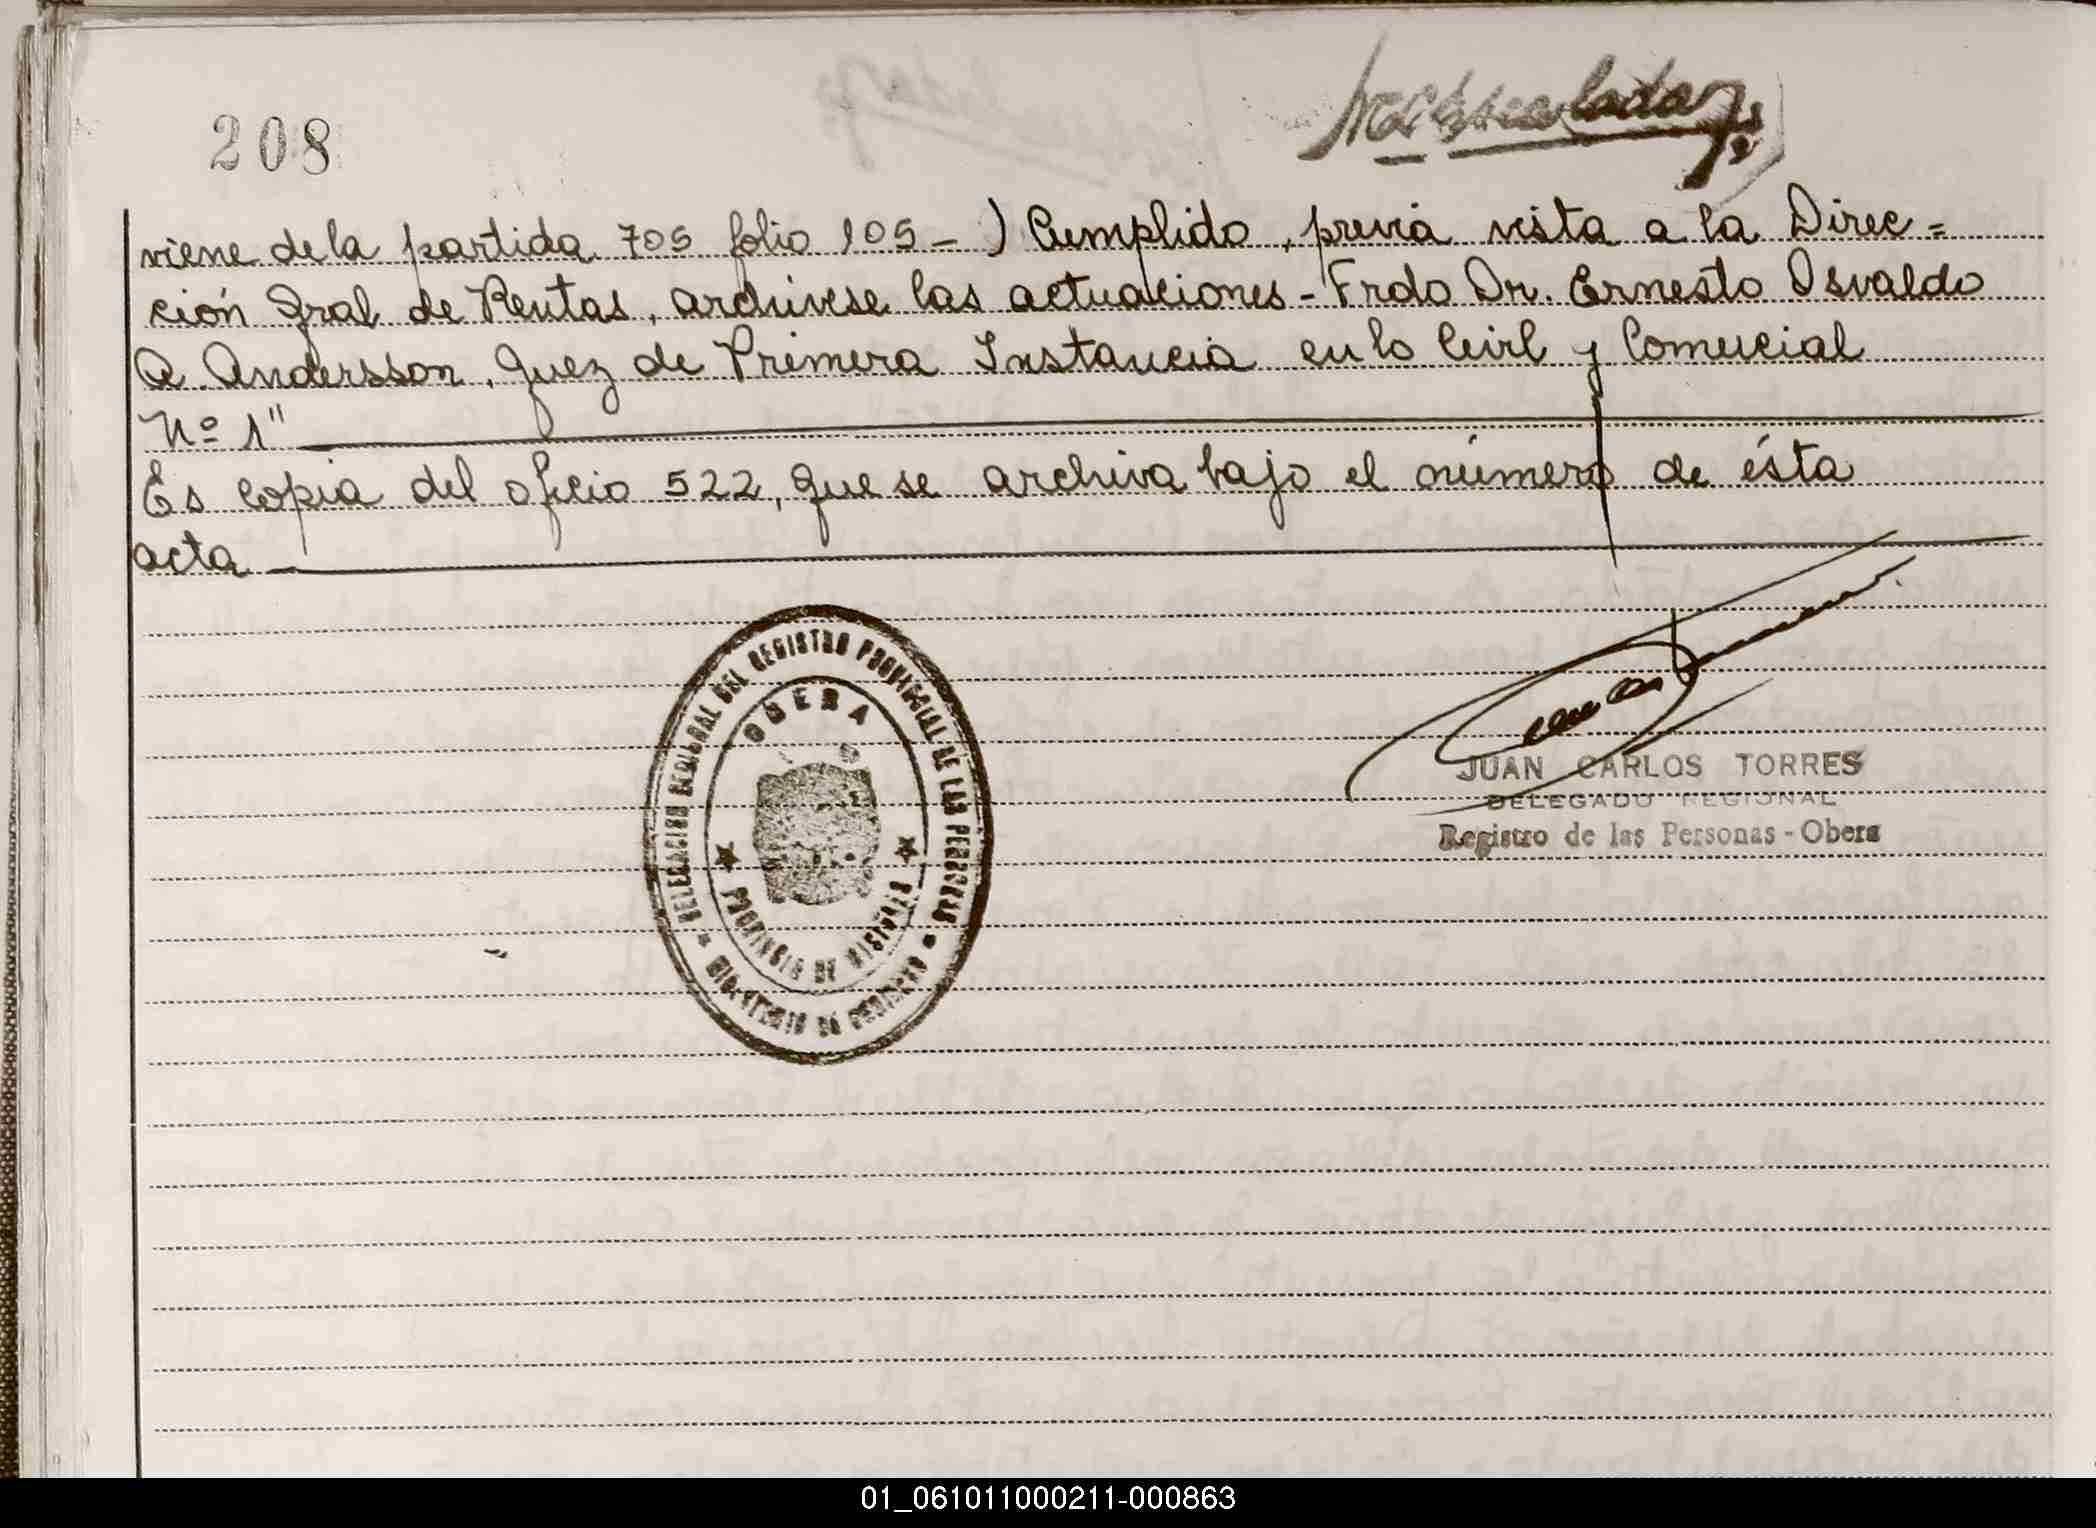 208
viene de la partida 705 folio 105 - ) Cumplido, previa vista a la Direc=
ción Gral de Rentas, archivese las actuaciones - Frdo Dr. Ernesto Osvaldo
A. Andersson, Juez de Primera Instancia en lo Civil y Comercial
Nº 1"
Es copia del oficio 522, que se archiva bajo el número de ésta
acta
DELEGACION REGIONAL DEL REGISTRO PROVINCIAL DE LAS PERSONAS
OBERA
PROVINCIA DE MISIONES
MINISTERIO DE GOBIERNO
JUAN CARLOS TORRES
DELEGADO REGIONAL
Registro de las Personas - Obera
01_061011000211-000863